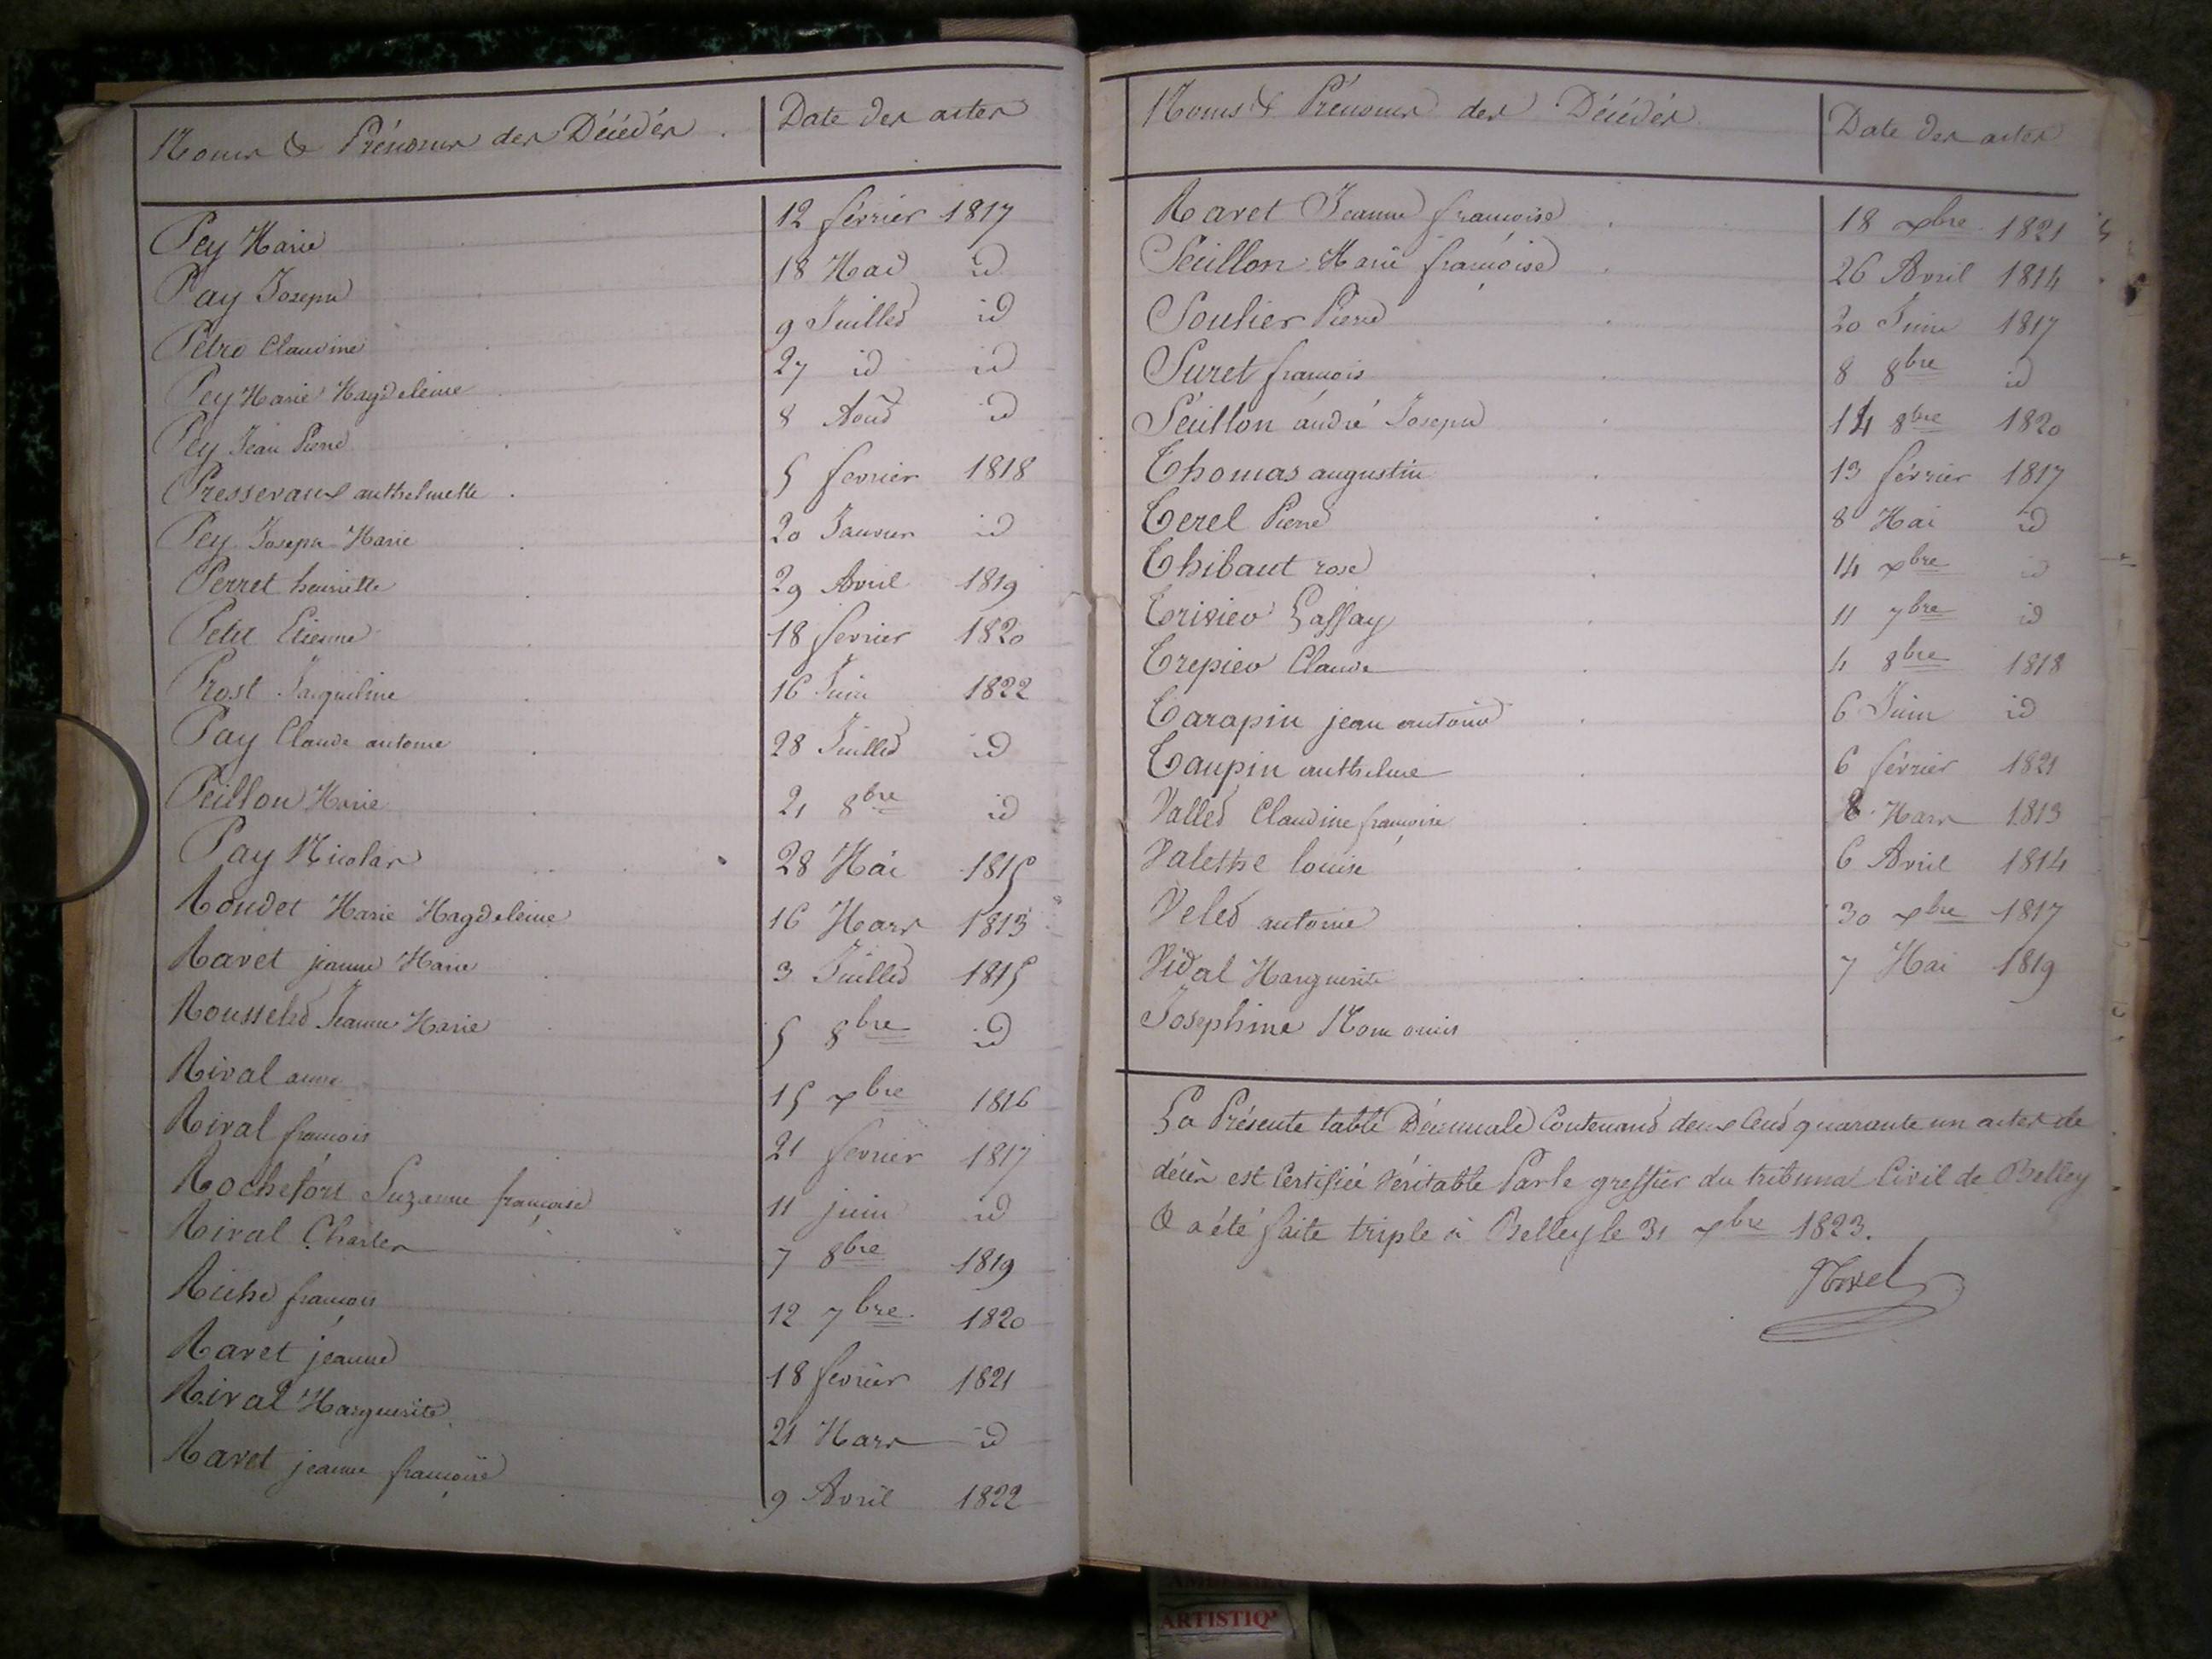 Noms & Prénoms des Décédés. Date des actes
Pey Marie 12 février 1817
Pay Joseph 18 Mai id
Petro Claudine 9 Juillet id
Pey Marie Magdeleine 27 id id
Pey Jean Pierre 8 Aout id
Presservaux anthelmette 5 fevrier 1818
Pey Joseph Marie 20 Janvier id
Perret henriette 29 Avril 1819
Petit Etienne 18 fevrier 1820
Prost Jacqueline 16 Juin 1822
Pay Claude antoine 28 Juillet id
Peillon Marie 21 8bre id
Pay Nicolas 28 Mai 1815
Roudet Marie Magdeleine 16 Mars 1813
Ravet jeanne Marie 3 Juillet 1815
Rousselet Jeanne Marie 5 8bre id
Rival anne 15 xbre 1816
Rival francois 21 fevrier 1817
Rochefort Suzanne françoise 11 juin id
Rival Charles 7 8bre 1819
Riche françois 12 7bre 1820
Ravet jeanne 18 fevrier 1821
Rival Marguerite 21 Mars id
Ravet jeanne françoise 9 Avril 1822
Noms & Prénoms des Décédés Date des actes
Ravet Jeanne françoise 18 xbre 1821
Seuillon Marie françoise 26 Avril 1814
Soulier Pierre 20 Juin 1817
Suret françois 8 8bre id
Séuillon andré Joseph 14 8bre 1820
Thomas augustin 13 février 1817
Terel Pierre 8 Mai id
Thibaut rose 14 xbre id
11 7bre id
Trepier Claude 4 8bre 1818
Tarapin jean antoine 6 Juin id
Taupin anthelme 6 février 1821
Vallet Claudine françoise 8 Mars 1813
Valette louise 6 Avril 1814
Velet antoine 30 xbre 1817
Vidal Marguerite 7 Mai 1819
Josephine Nom omis
La Présente table Décennale Contenant deux Cent quarante un actes de
décès est Certifiée Véritable Par le greffier du tribunal Civil de Belley
& a été faite triple à Belley le 31 xbre 1823.
ARTISTIQ